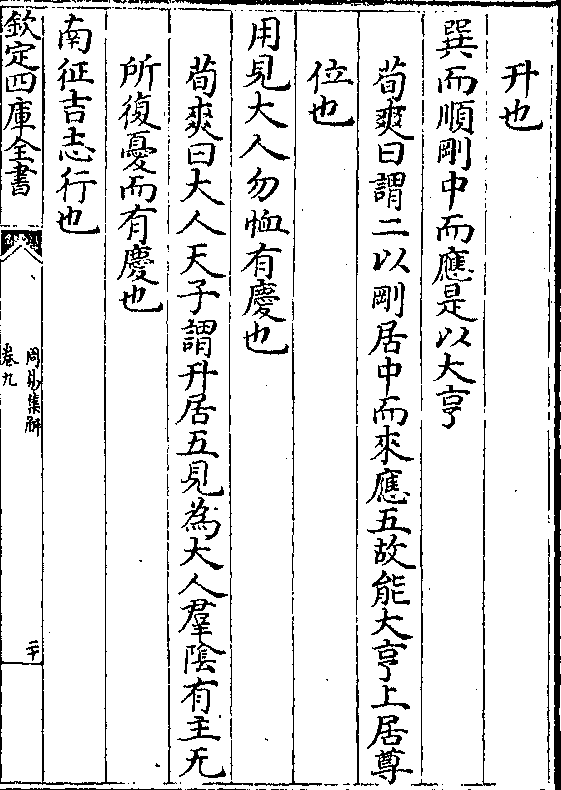 升也
巽而順剛中而應是以大亨
荀爽曰謂二以剛居中而來應五故能大亨上居尊
位也
用見大人勿恤有慶也
荀爽曰大人天子謂升居五見為大人羣陰有主无
所復憂而有慶也
南征吉志行也
欽定四庫全書
周易集解
卷九
二十